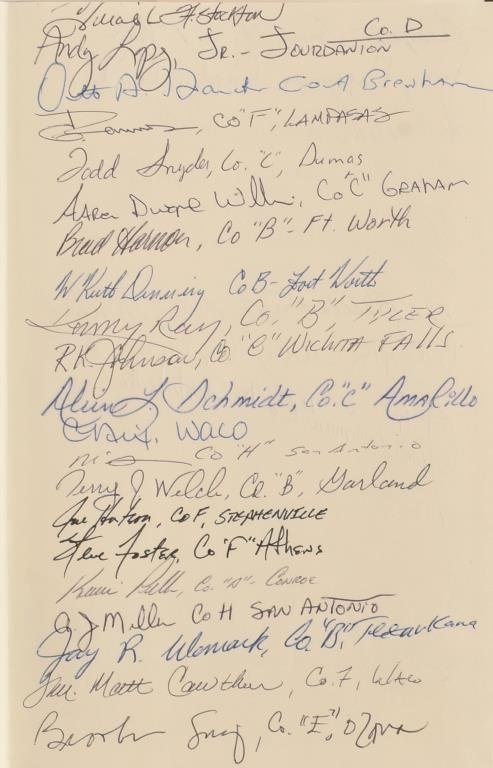 Ft. Stockton
Andy Lopez, Jr. - Jourdanton Co. D
Otto A. Co A Brenham
, Co "F", LAMPASAS
Todd Snyder, Co. "C", Dumas
Aaron Dwayne , Co "C" GRAHAM
Brad Harmon, Co "B" - Ft. Worth
W Keith Denning Co B - Fort Worth
Kenny Ray, Co. "B", TYLER
R.K. Johnson, Co. "C" WICHITA FALLS
L. Schmidt, Co. "C" AMARILLO
WACO
Co "H" San Antonio
Terry J Welch, Co. "B", Garland
, Co F, STEPHENVILLE
Steve Foster, Co "F" Athens
, Co. "A" - CONROE
J Miller Co H SAN ANTONIO
Jay R. Womack, Co. "B", Texarkana
Matt Cawthon, Co. F, Waco
, Co. "E", Ozona